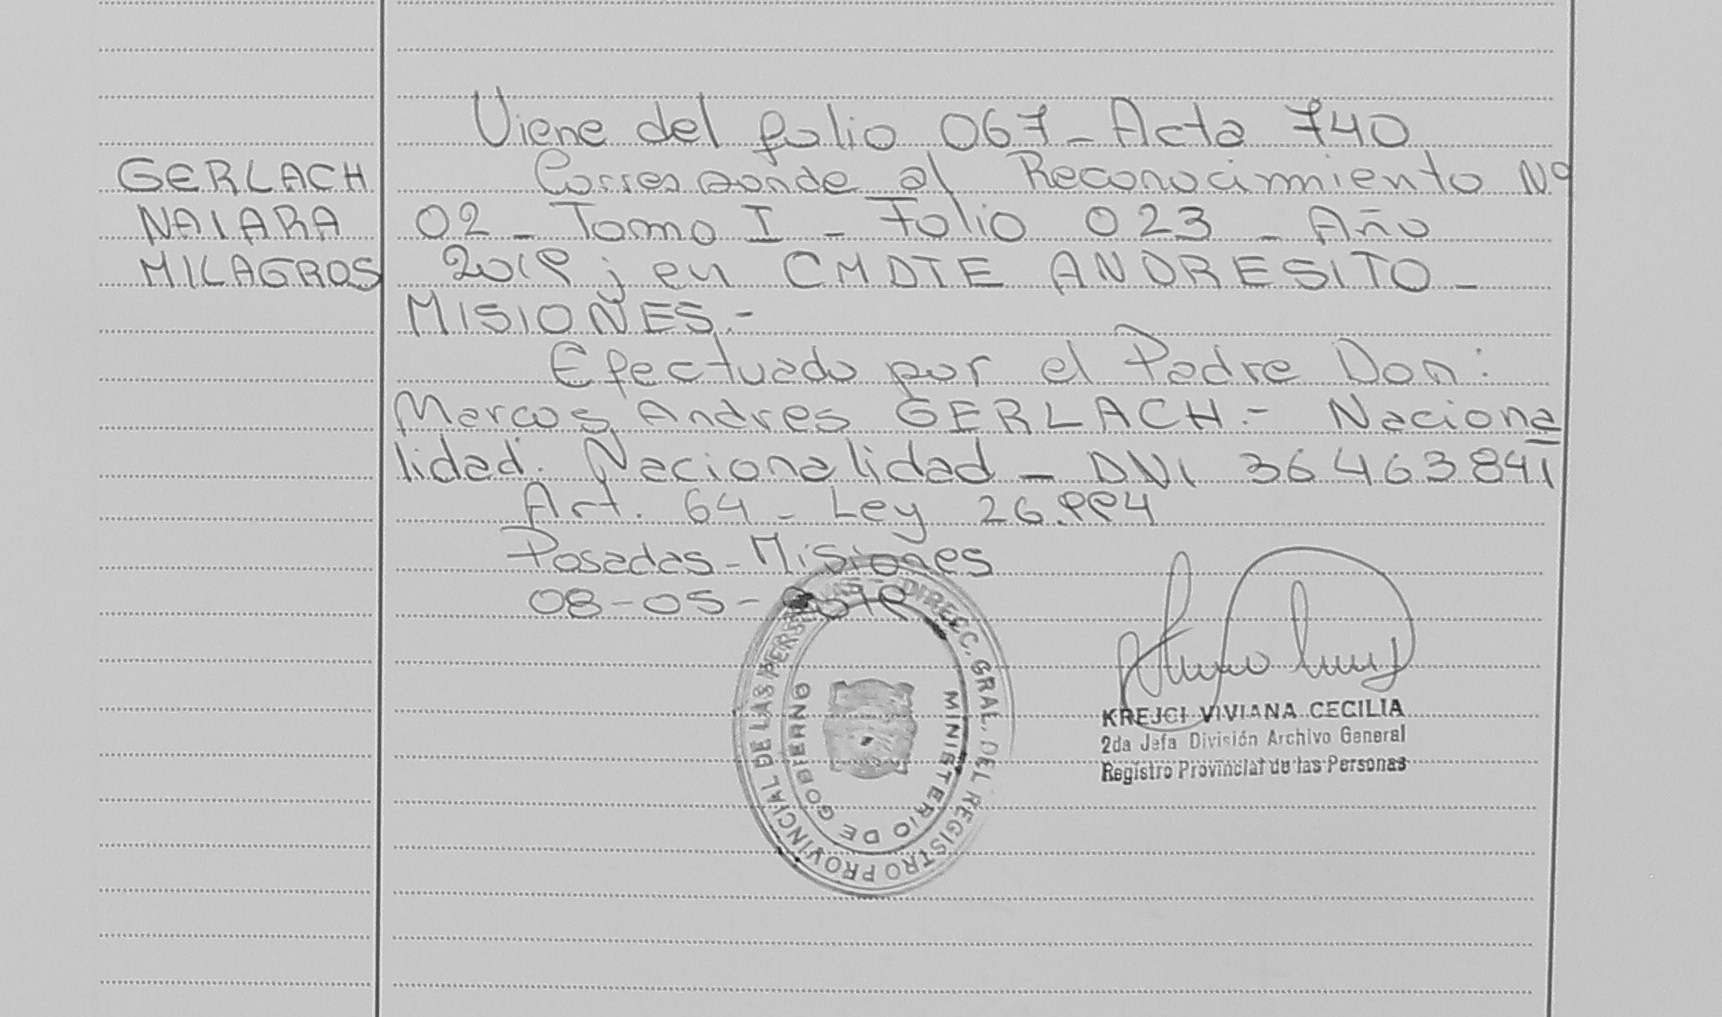 Viene del folio 067 - Acta 740
GERLACH
NAIARA
MILAGROS
Corresponde al Reconocimiento Nº
02 - Tomo I - Folio 023 - Año
2019 ; en CMDTE ANDRESITO -
MISIONES.-
Efectuado por el Padre Don:
Marcos Andres GERLACH.- Naciona
lidad. Nacionalidad - DNI 36463841
Art. 64 - Ley 26.994
Posadas - Misiones
08-05-2019
DIRECC. GRAL. DEL REGISTRO PROVINCIAL DE LAS PERSONAS -
MINISTERIO DE GOBIERNO
KREJCI VIVIANA CECILIA
2da Jefa División Archivo General
Registro Provincial de las Personas